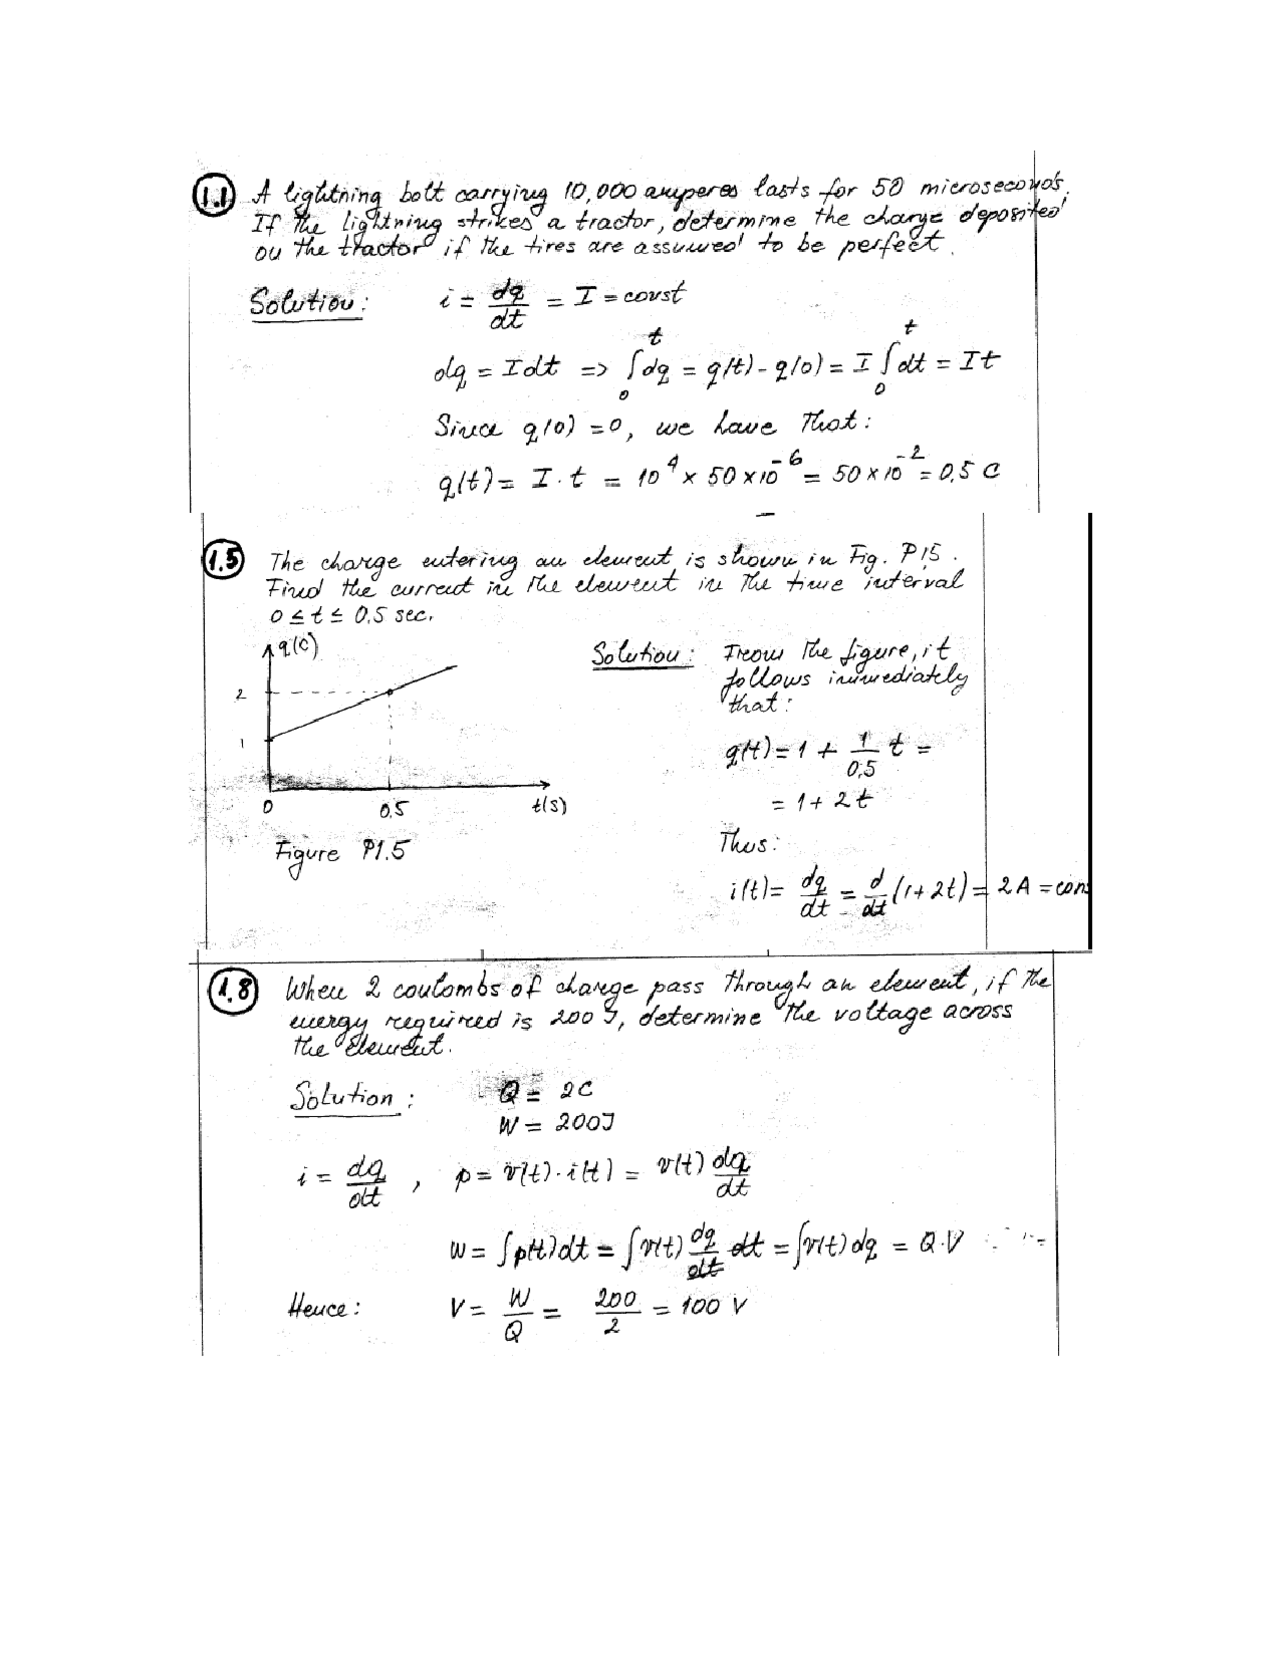 1.1 A lightning bolt carrying 10,000 amperes lasts for 50 microseconds.
If the lightning strikes a tractor, determine the charge deposited
on the tractor if the tires are assumed to be perfect.
Solution: i = dq/dt = I = const
dq = Idt => ∫₀ᵗ dq = q(t) - q(0) = I ∫₀ᵗ dt = It
Since q(0) = 0, we have that:
q(t) = I · t = 10⁴ × 50 × 10⁻⁶ = 50 × 10⁻² = 0.5 C
1.5 The charge entering an element is shown in Fig. P1.5.
Find the current in the element in the time interval
0 ≤ t ≤ 0.5 sec.
q(C)
2
1
0
0.5
t(s)
Figure P1.5
Solution: From the figure, it
follows immediately
that:
q(t) = 1 + 1/0.5 t =
= 1 + 2t
Thus:
i(t) = dq/dt = d/dt (1 + 2t) = 2A = cons
1.8 When 2 coulombs of charge pass through an element, if the
energy required is 200 J, determine the voltage across
the element.
Solution: Q = 2C
W = 200J
i = dq/dt , p = v(t) · i(t) = v(t) dq/dt
W = ∫p(t)dt = ∫v(t) dq/dt dt = ∫v(t) dq = Q·V
Hence: V = W/Q = 200/2 = 100 V